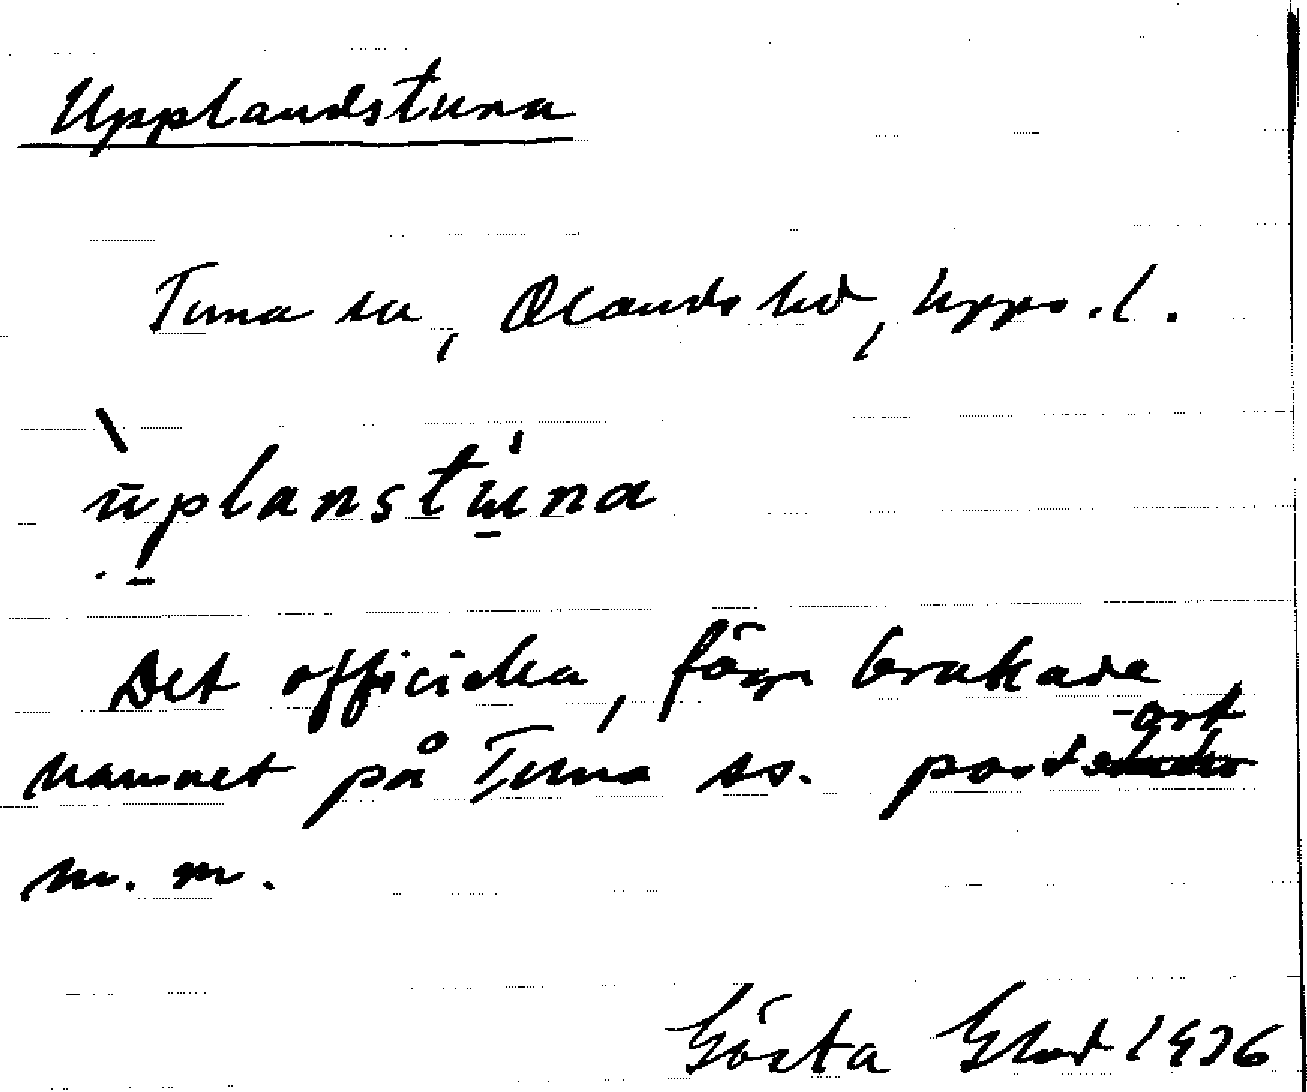 Upplandstuna
Tuna sn, Olands hd, Upps. l.
ùplanstúna
Det officiella, föga brukade
namnet på Tuna ss. postort
m. m.
Gösta 1936